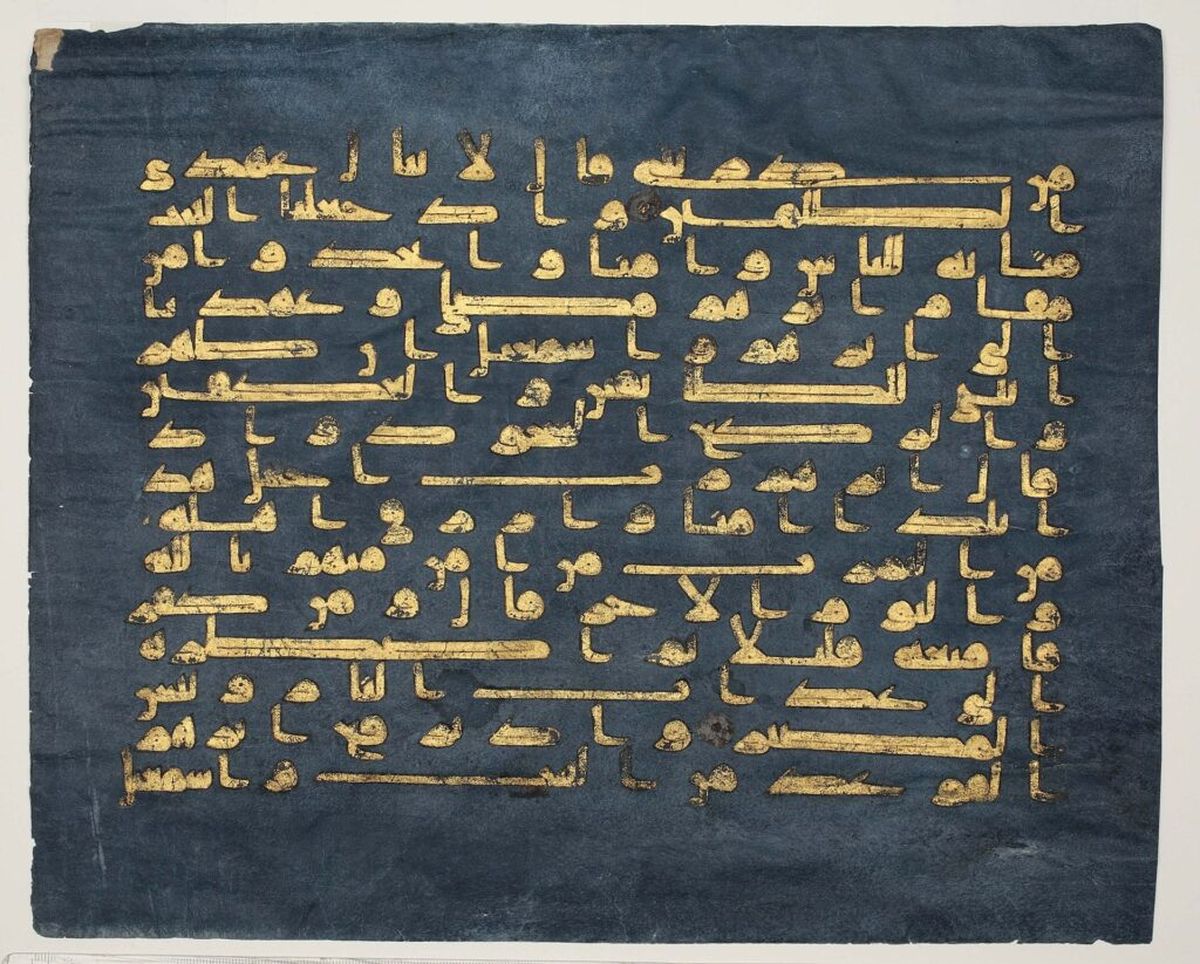 من ذريتي قال لا ينال عهدي
الظلمين واذ جعلنا البيت
مثابة للناس وامنا واتخذوا من
مقام ابرهم مصلى وعهدنا
الى ابرهم واسمعيل ان طهر
ا بيتي للطائفين والعكفين
والركع السجود واذ
قال ابرهم رب اجعل هذ
ا بلدا امنا وارزق اهله
من الثمرت من امن منهم بالله
واليوم الاخر قال ومن كفر
فامتعه قليلا ثم اضطره
الى عذاب النار وبئس
المصير واذ يرفع ابرهم
القواعد من البيت واسمعيل